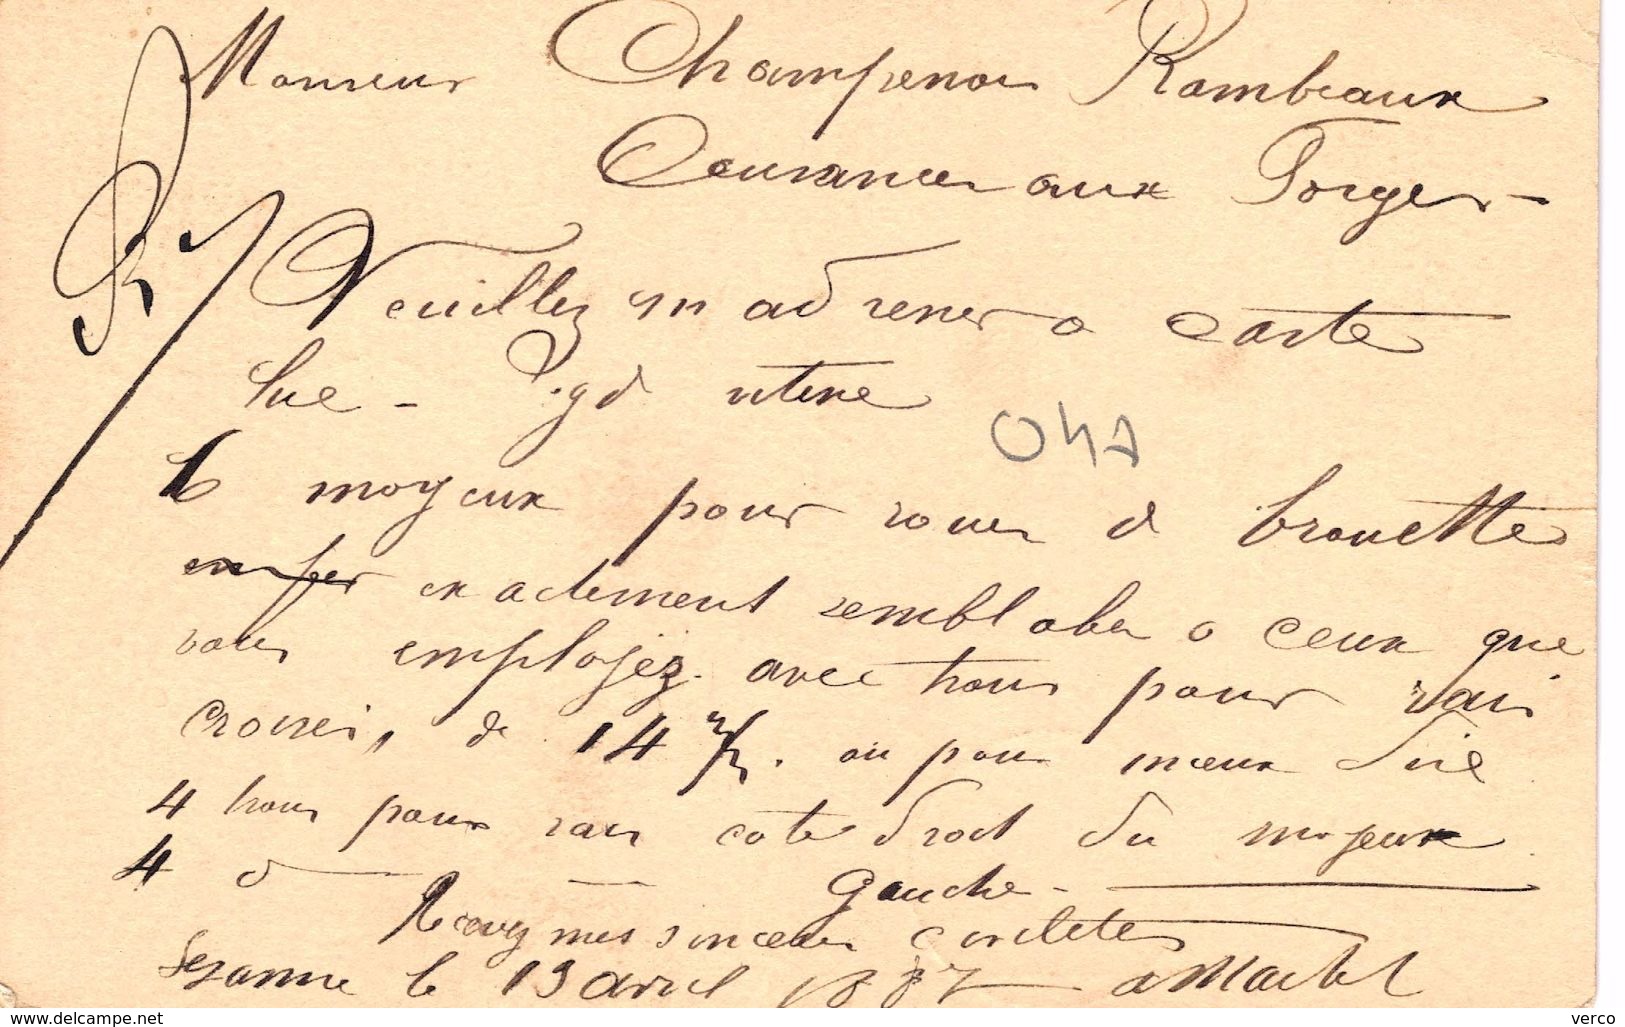 Monsieur Champenois Rambeaux
Cousances aux Forges
R
Veuillez m adresser a carte
lue - gd vitesse
047
6 moyeux pour roues de brouettes
en fer exactement semblables a ceux que
vous employez. avec trous pour rais
croisés, de 14 ou pour mieux dire
4 trous pour rais coté droit du moyeux
4 d gauche
Recevez mes sinceres civilités
Sezanne le 13 avril 1887
www.delcampe.net
verco